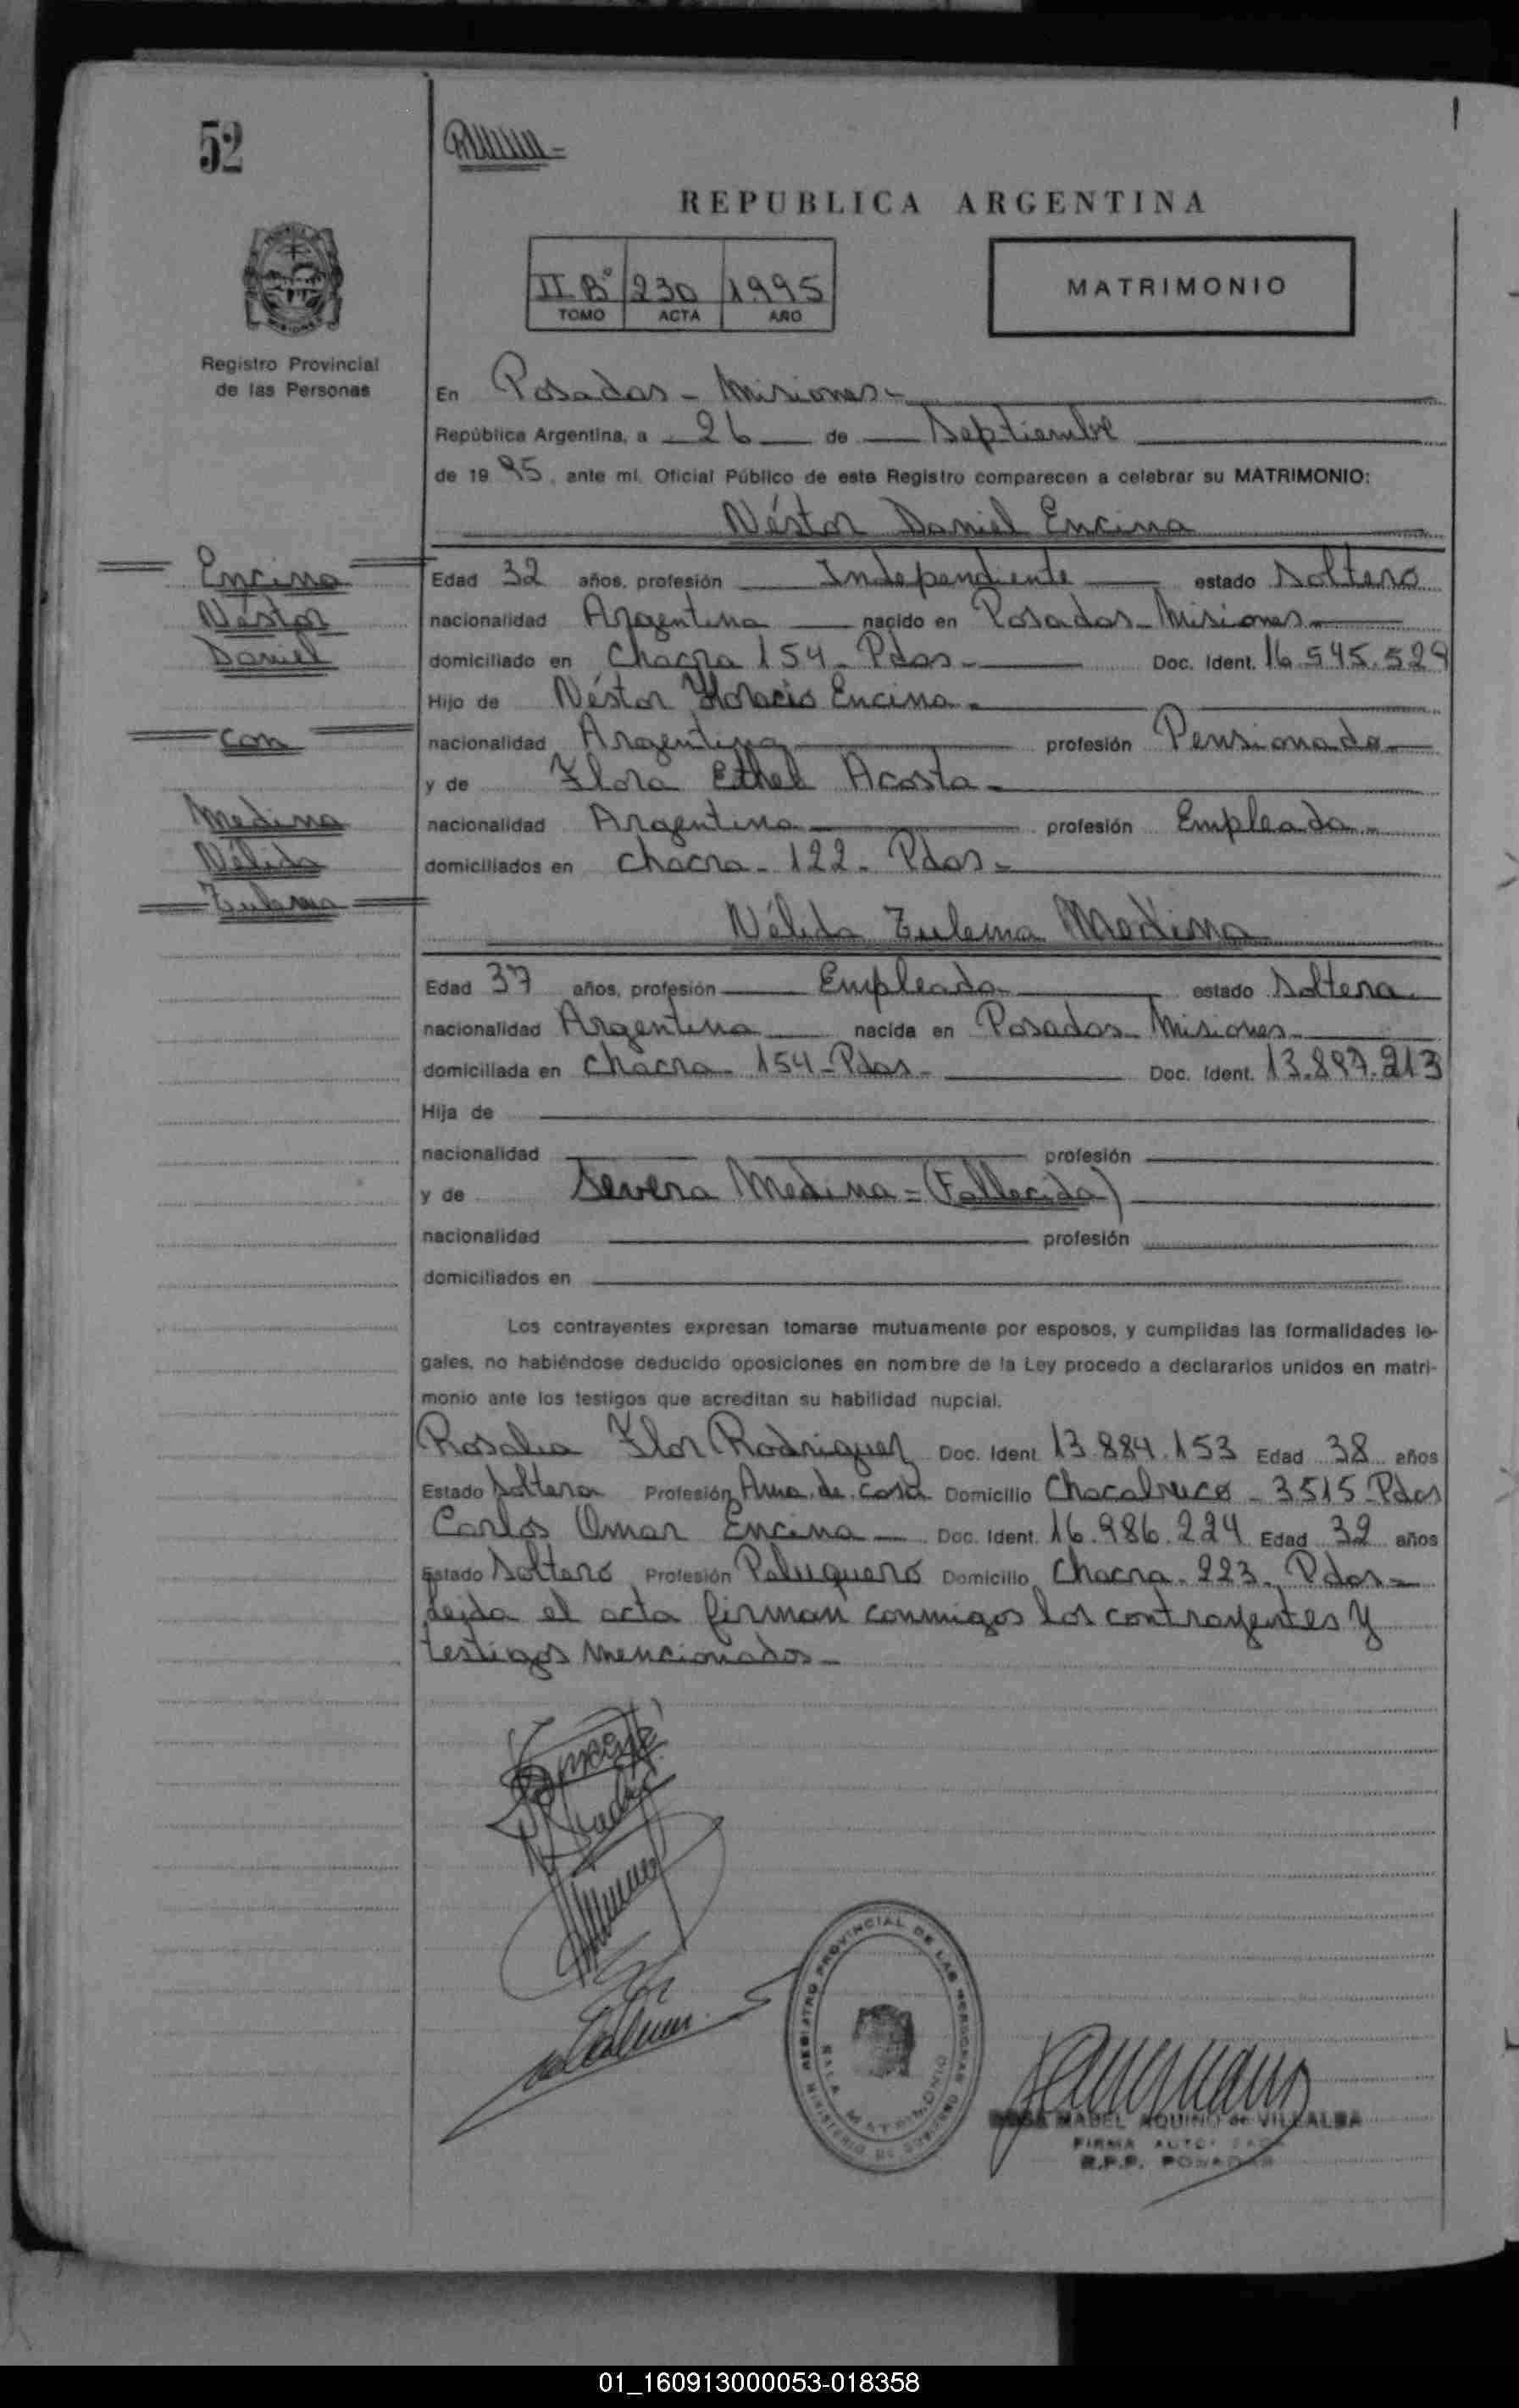 52
REPUBLICA ARGENTINA
II Bº 230 1995
TOMO ACTA AÑO
MATRIMONIO
Registro Provincial
de las Personas
En Posadas - Misiones -
República Argentina, a 26 de Septiembre
de 19 95, ante mí, Oficial Público de este Registro comparecen a celebrar su MATRIMONIO:
Néstor Daniel Encina
Encina
Néstor
Daniel
con
Medina
Nélida
Zulema
Edad 32 años, profesión Independiente estado Soltero
nacionalidad Argentina nacido en Posadas - Misiones -
domiciliado en Chacra 154 - Pdas - Doc. Ident. 16.545.529
Hijo de Néstor Horacio Encina -
nacionalidad Argentina profesión Pensionado -
y de Flora Ethel Acosta -
nacionalidad Argentina profesión Empleada -
domiciliados en Chacra - 122 - Pdas -
Nélida Zulema Medina
Edad 37 años, profesión Empleada - estado Soltera
nacionalidad Argentina nacida en Posadas - Misiones -
domiciliada en Chacra - 154 - Pdas - Doc. Ident. 13.897.213
Hija de
nacionalidad profesión
y de Severa Medina = (Fallecida)
nacionalidad profesión
domiciliados en
Los contrayentes expresan tomarse mutuamente por esposos, y cumplidas las formalidades le-
gales, no habiéndose deducido oposiciones en nombre de la Ley procedo a declararlos unidos en matri-
monio ante los testigos que acreditan su habilidad nupcial.
Rosalia Flor Rodriguez Doc. Ident. 13.884.153 Edad 38 años
Estado Soltera Profesión Ama de Casa Domicilio Chacabuco - 3515 - Pdas
Carlos Omar Encina Doc. Ident. 16.986.224 Edad 32 años
Estado Soltero Profesión Peluquero Domicilio Chacra - 223 - Pdas -
leida el acta firman conmigos los contrayentes y
testigos mencionados -
REGISTRO PROVINCIAL DE LAS PERSONAS
MINISTERIO DE GOBIERNO
SALA MATRIMONIO
ROSA MABEL AQUINO de VILLALBA
FIRMA AUTORIZADA
R.P.P. POSADAS
01_160913000053-018358